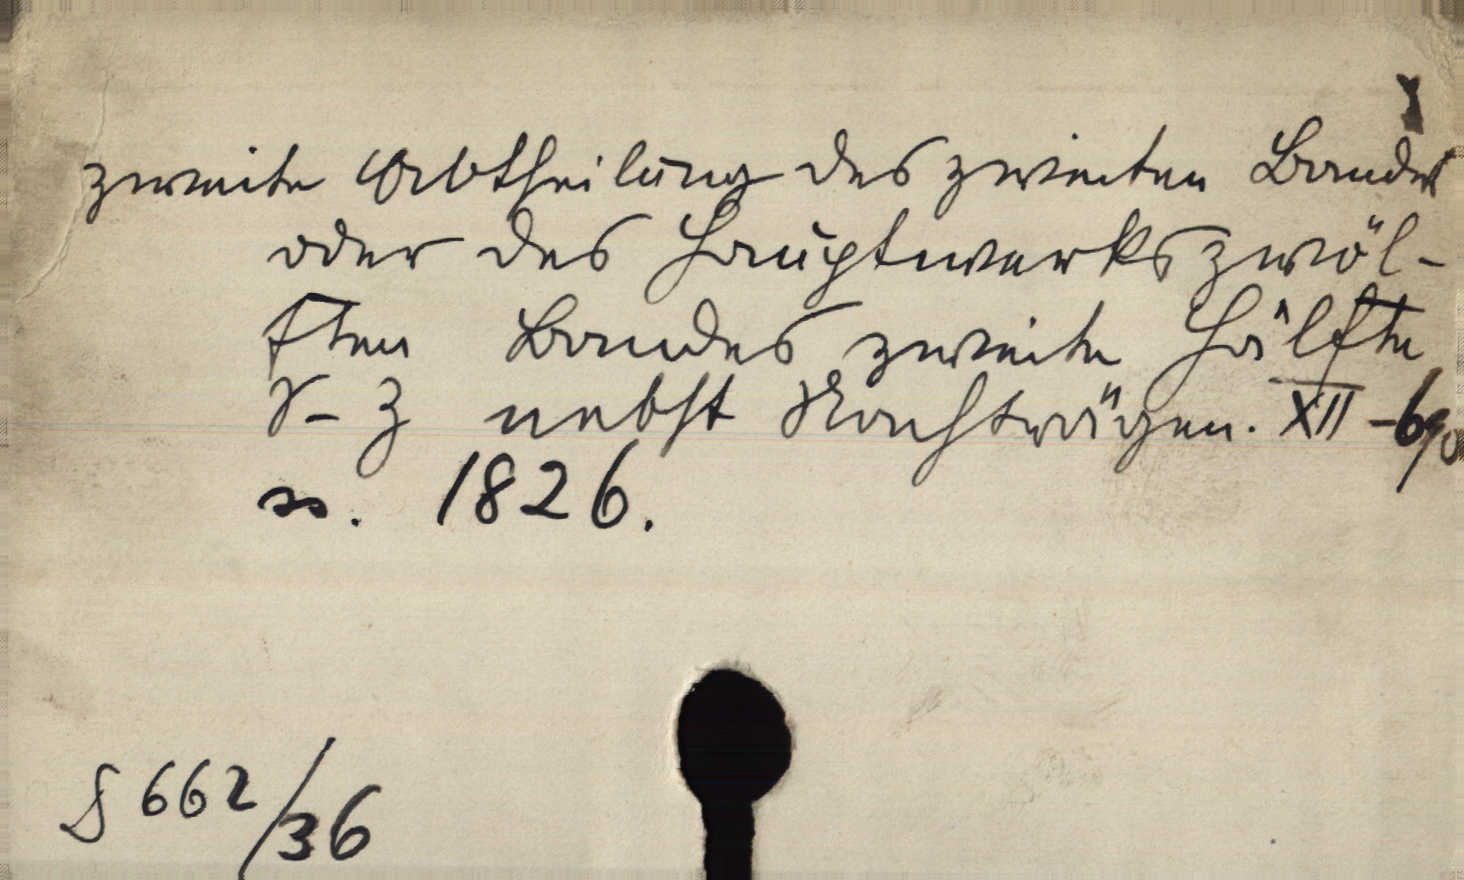 zweite Abtheilung des zweiten Bandes
oder des Hauptwerks zwöl-
ften Bandes zweite Hälfte
V-Z nebst Nachträgen. XII -690
ss. 1826.
§ 662/36